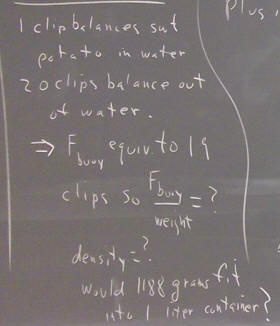 1 clip balances sut
potato in water
20 clips balance out
of water.
⇒ F buoy equiv. to 19
clips so F buoy / weight = ?
density = ?
would 1188 grams fit
into 1 liter container?
plus,